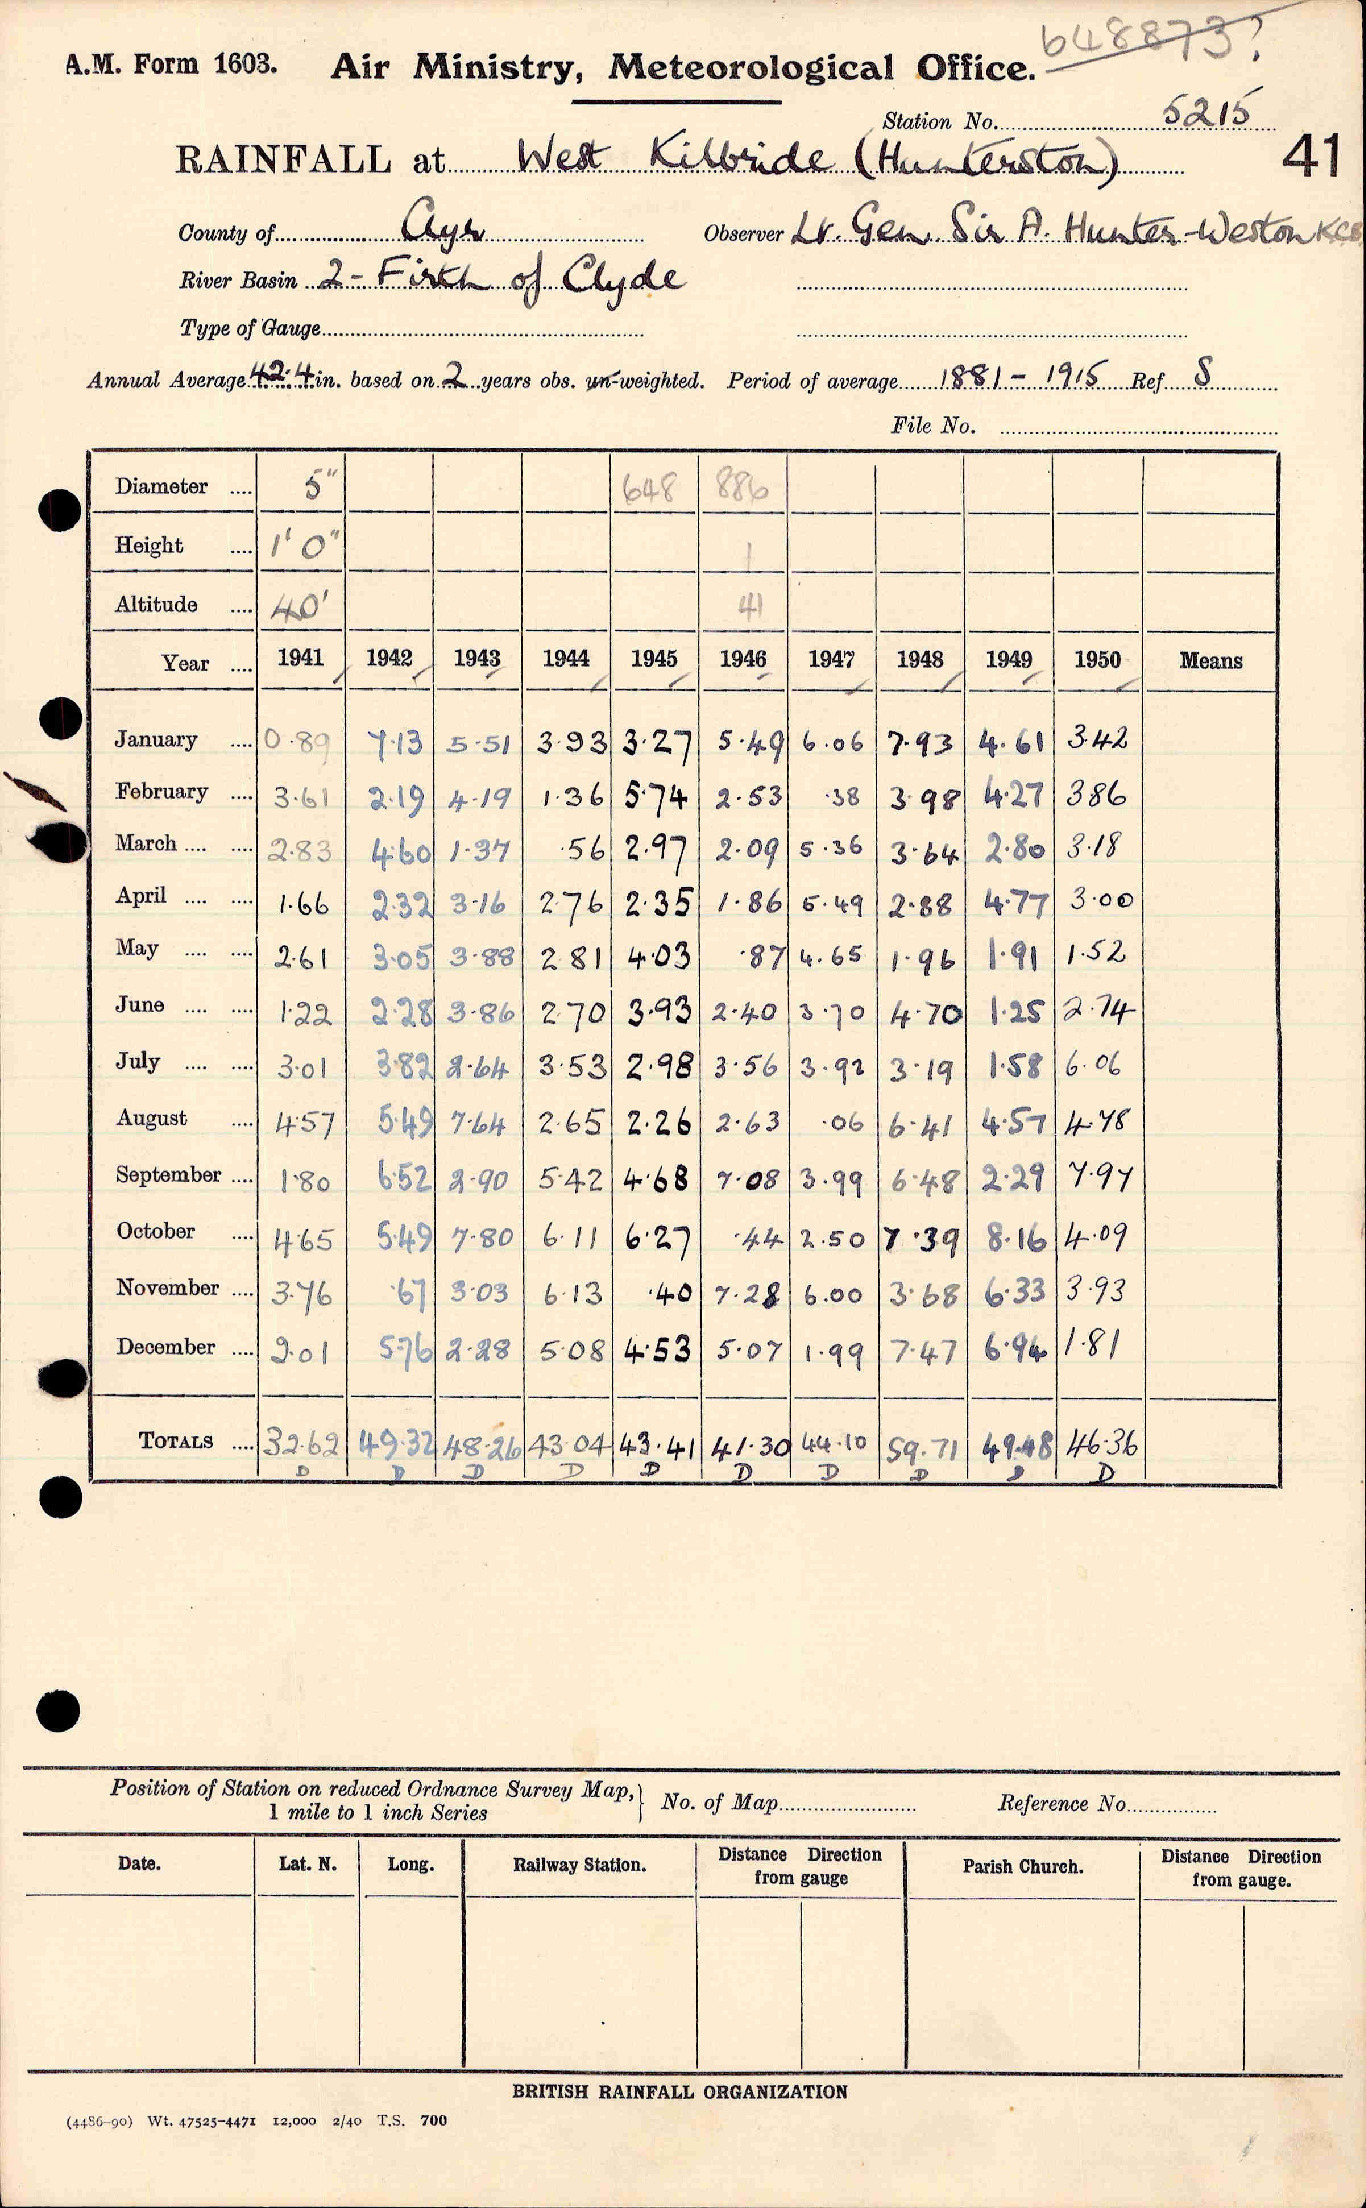 648873?
A.M. Form 1603. Air Ministry, Meteorological Office.
Station No. 5215
RAINFALL at West Kilbride (Hunterston) 41
County of Ayr Observer Lt. Gen. Sir A. Hunter-Weston KCB
River Basin 2 - Firth of Clyde
Type of Gauge
Annual Average 42.4 in. based on 2 years obs. un-weighted. Period of average 1881 - 1915 Ref S
File No.
Diameter .... 5" 648 886
Height .... 1' 0" 1
Altitude .... 40' 41
Year .... 1941 1942 1943 1944 1945 1946 1947 1948 1949 1950 Means
January .... 0.89 7.13 5.51 3.93 3.27 5.49 6.06 7.93 4.61 3.42
February .... 3.61 2.19 4.19 1.36 5.74 2.53 .38 3.98 4.27 3.86
March .... .... 2.83 4.60 1.37 .56 2.97 2.09 5.36 3.64 2.80 3.18
April .... .... 1.66 2.32 3.16 2.76 2.35 1.86 5.49 2.88 4.77 3.00
May .... .... 2.61 3.05 3.88 2.81 4.03 .87 4.65 1.96 1.91 1.52
June .... .... 1.22 2.28 3.86 2.70 3.93 2.40 3.70 4.70 1.25 2.74
July .... .... 3.01 3.82 2.64 3.53 2.98 3.56 3.92 3.19 1.58 6.06
August .... 4.57 5.49 7.64 2.65 2.26 2.63 .06 6.41 4.57 4.78
September .... 1.80 6.52 2.90 5.42 4.68 7.08 3.99 6.48 2.29 7.97
October .... 4.65 5.49 7.80 6.11 6.27 .44 2.50 7.39 8.16 4.09
November .... 3.76 .67 3.03 6.13 .40 7.28 6.00 3.68 6.33 3.93
December .... 2.01 5.76 2.28 5.08 4.53 5.07 1.99 7.47 6.94 1.81
TOTALS .... 32.62 49.32 48.26 43.04 43.41 41.30 44.10 59.71 49.48 46.36
D D D D D D D D D D
Position of Station on reduced Ordnance Survey Map, 1 mile to 1 inch Series } No. of Map Reference No.
Date. Lat. N. Long. Railway Station. Distance from gauge Direction Parish Church. Distance Direction from gauge.
BRITISH RAINFALL ORGANIZATION
(4486-90) Wt. 47525-4471 12,000 2/40 T.S. 700